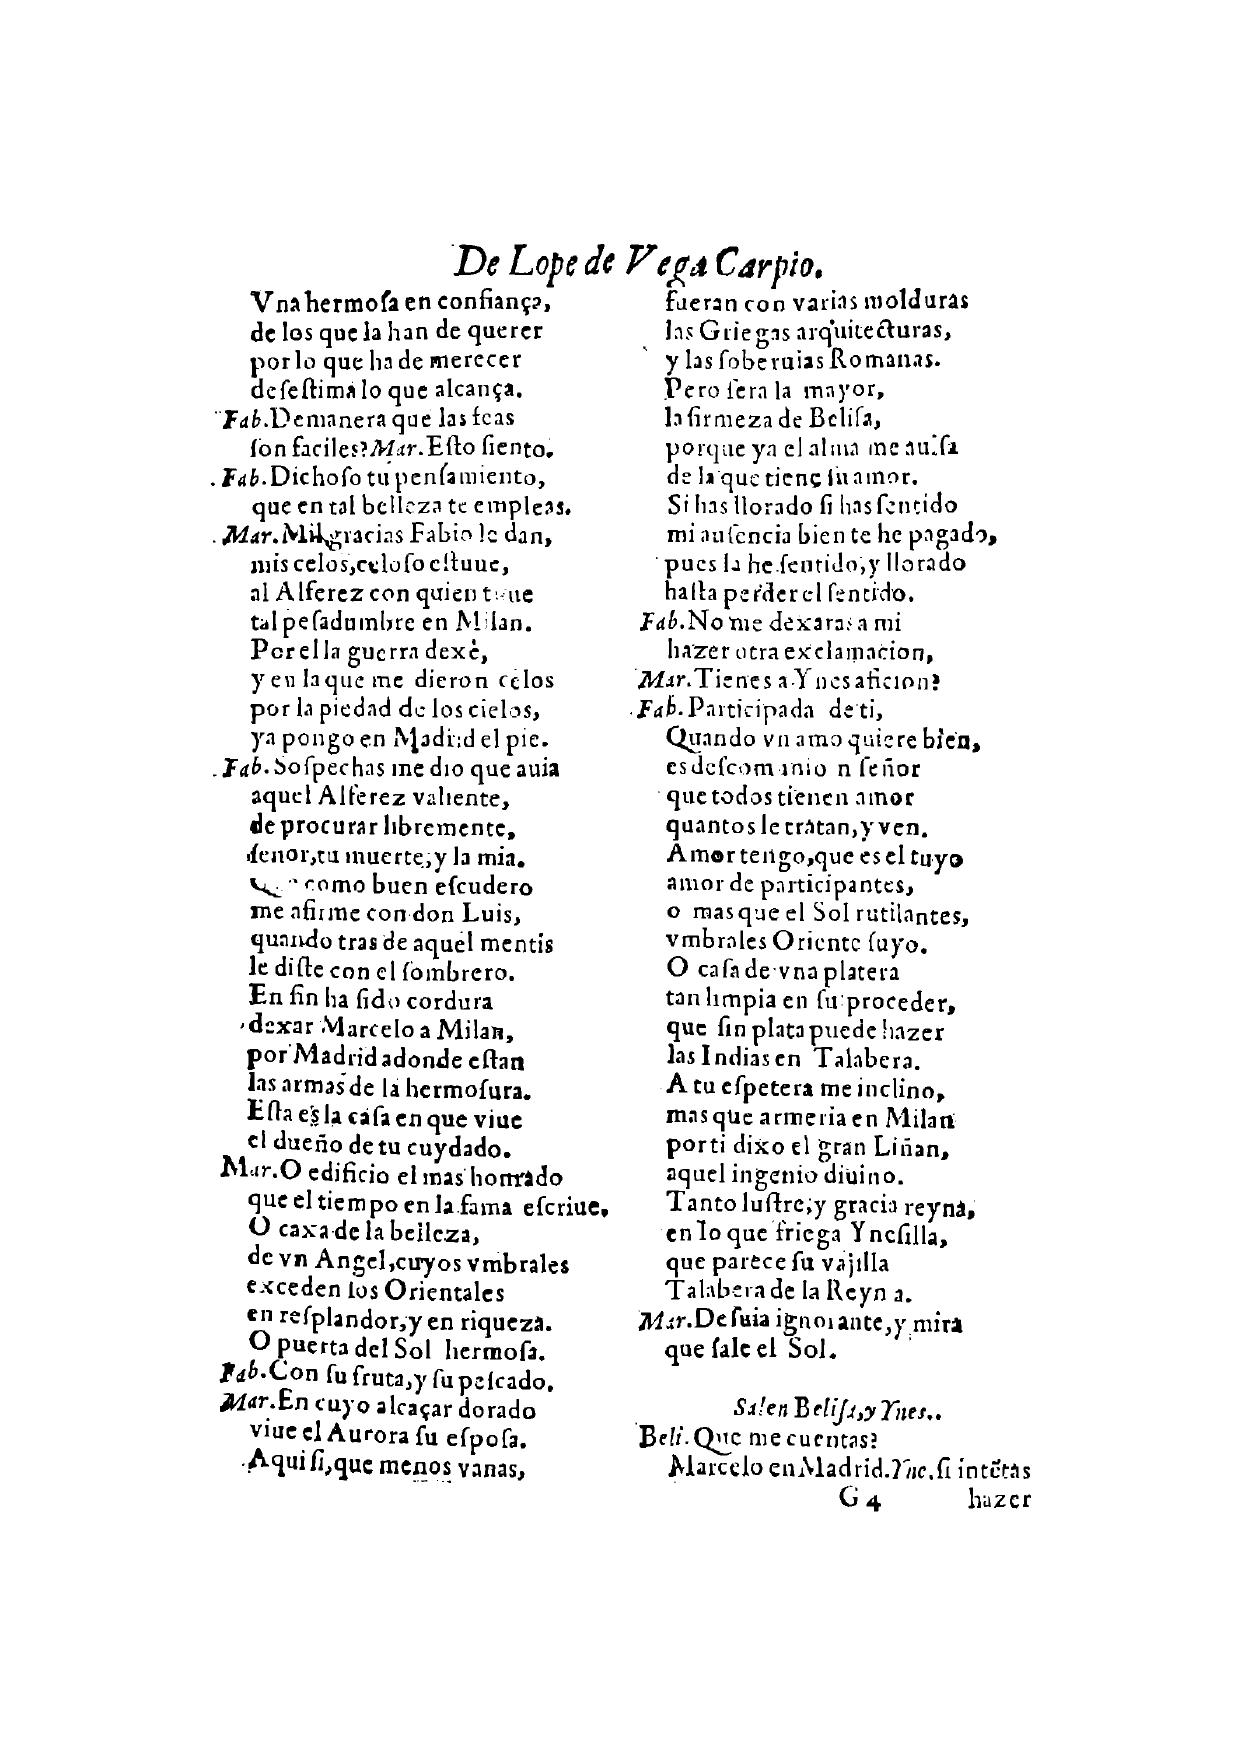 De Lope de Vega Carpio.
Vna hermoſa en confiança,
de los que la han de querer
por lo que ha de merecer
deſeſtima lo que alcança.
Fab. Demanera que las feas
ſon faciles? Mar. Eſto ſiento.
Fab. Dichoſo tu penſamiento,
que en tal belleza te empleas.
Mar. Mil gracias Fabio le dan,
mis celos, celoſo eſtuue,
al Alferez con quien tuue
tal peſadumbre en Milan.
Por el la guerra dexè,
y en la que me dieron celos
por la piedad de los cielos,
ya pongo en Madrid el pie.
Fab. Soſpechas me dio que auia
aquel Alferez valiente,
de procurar libremente,
ſenor, tu muerte, y la mia.
como buen eſcudero
me afirme con don Luis,
quando tras de aquel mentis
le diſte con el ſombrero.
En fin ha ſido cordura
dexar Marcelo a Milan,
por Madrid adonde eſtan
las armas de la hermoſura.
Eſta es la caſa en que viue
el dueño de tu cuydado.
Mar. O edificio el mas honrado
que el tiempo en la fama eſcriue,
O caxa de la belleza,
de vn Angel, cuyos vmbrales
exceden los Orientales
en reſplandor, y en riqueza.
O puerta del Sol hermoſa.
Fab. Con ſu fruta, y ſu peſcado.
Mar. En cuyo alcaçar dorado
viue el Aurora ſu eſpoſa.
Aqui ſi, que menos vanas,
fueran con varias molduras
las Griegas arquitecturas,
y las ſoberuias Romanas.
Pero ſera la mayor,
la firmeza de Beliſa,
porque ya el alma me auiſa
de la que tiene ſu amor.
Si has llorado ſi has ſentido
mi auſencia bien te he pagado,
pues la he ſentido, y llorado
haſta perder el ſentido.
Fab. No me dexaras a mi
hazer otra exclamacion,
Mar. Tienes a Ynes aficion?
Fab. Participada de ti,
Quando vn amo quiere bien,
es deſcomunion ſeñor
que todos tienen amor
quantos le tratan, y ven.
Amor tengo, que es el tuyo
amor de participantes,
o mas que el Sol rutilantes,
vmbrales Oriente ſuyo.
O caſa de vna platera
tan limpia en ſu proceder,
que ſin plata puede hazer
las Indias en Talabera.
A tu eſpetera me inclino,
mas que armeria en Milan
por ti dixo el gran Liñan,
aquel ingenio diuino.
Tanto luſtre, y gracia reyna,
en lo que friega Yneſilla,
que parece ſu vajilla
Talabera de la Reyna.
Mar. Deſuia ignorante, y mira
que ſale el Sol.
Salen Beliſa, y Ynes.
Beli. Que me cuentas?
Marcelo en Madrid. Yne. ſi intẽtas
G 4 hazer